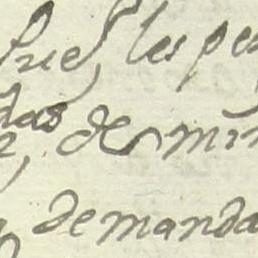 fue, les pe
das
de min
demanda